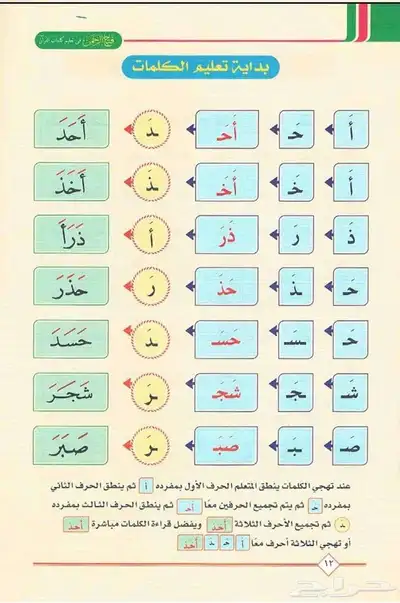 فتح الرحمن في تعليم كلمات القرآن
بداية تعليم الكلمات
أَ حَـ أَحَـ ـدَ أَحَدَ
أَ خَـ أَخَـ ـذَ أَخَذَ
ذَ رَ ذَرَ أَ ذَرَأَ
حَـ ـذَ حَذَ رَ حَذَرَ
حَـ ـسَـ حَسَـ ـدَ حَسَدَ
شَـ ـجَـ شَجَـ ـرَ شَجَرَ
صَـ ـبَـ صَبَـ ـرَ صَبَرَ
عند تهجي الكلمات ينطق المتعلم الحرف الأول بمفرده أَ ثم ينطق الحرف الثاني
بمفرده حَـ ثم يتم تجميع الحرفين معًا أَحَـ ثم ينطق الحرف الثالث بمفرده
ـدَ ثم تجميع الأحرف الثلاثة أَحَدَ ويفضل قراءة الكلمات مباشرة أَحَدَ
أو تهجي الثلاثة أحرف معًا أَ حَـ دَ أَحَدَ
١٢
حراج